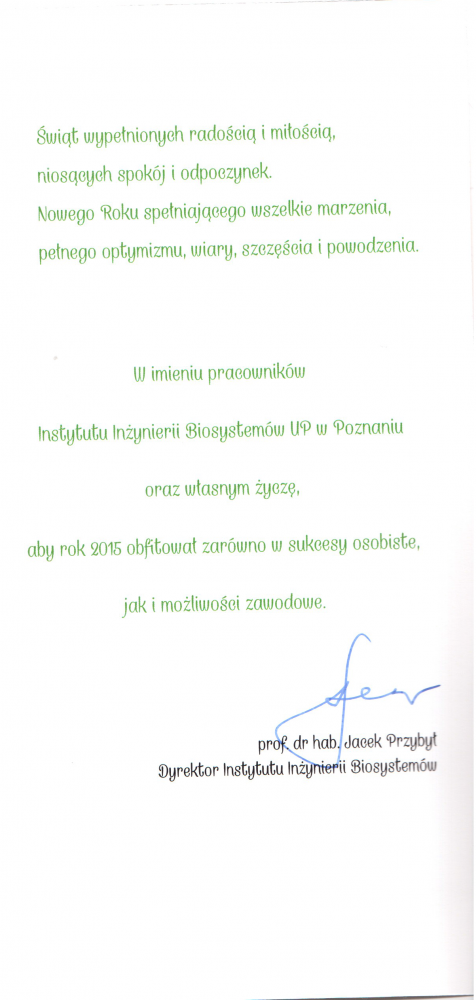 Świąt wypełnionych radością i miłością,
niosących spokój i odpoczynek.
Nowego Roku spełniającego wszelkie marzenia,
pełnego optymizmu, wiary, szczęścia i powodzenia.
W imieniu pracowników
Instytutu Inżynierii Biosystemów UP w Poznaniu
oraz własnym życzę,
aby rok 2015 obfitował zarówno w sukcesy osobiste,
jak i możliwości zawodowe.
prof. dr hab. Jacek Przybył
Dyrektor Instytutu Inżynierii Biosystemów